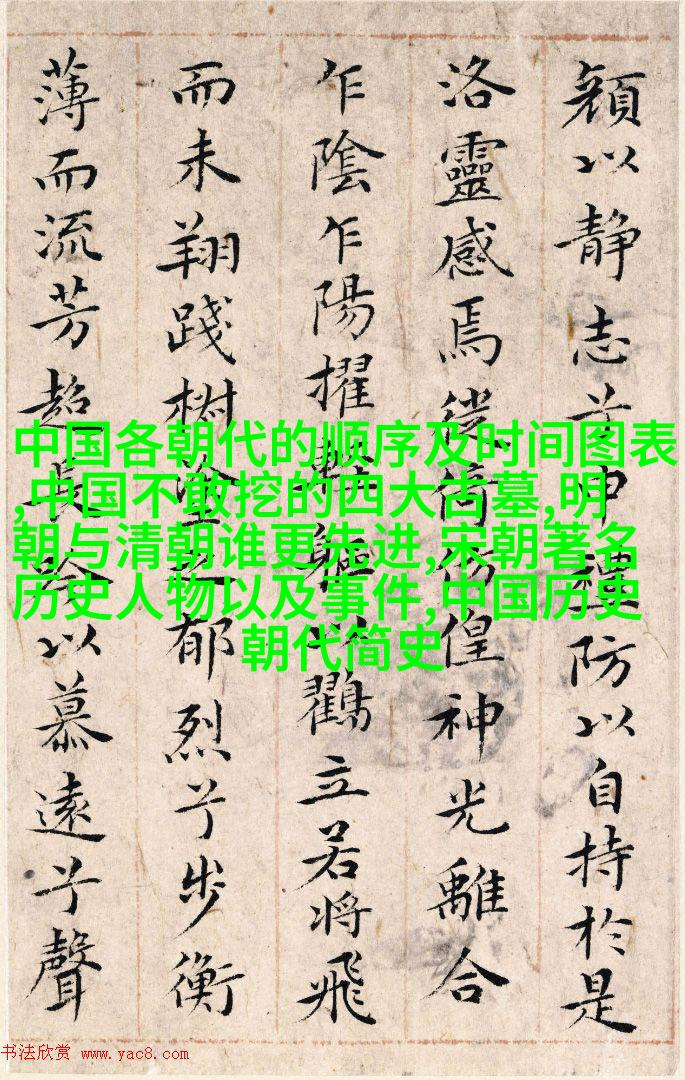 顔以静志兮申禮防以自持於是
洛靈感焉徙倚仿偟神光離合
乍陰乍陽擢輕軀以鸖立若將飛
而未翔踐椒塗之郁烈兮步衡
薄而流芳超長吟以慕遠兮聲
中国各朝代的顺序及时间图表
,中国不敢挖的四大古墓,明
朝与清朝谁更先进,宋朝著名
历史人物以及事件,中国历史
朝代简史
书法欣赏 www.yac8.com